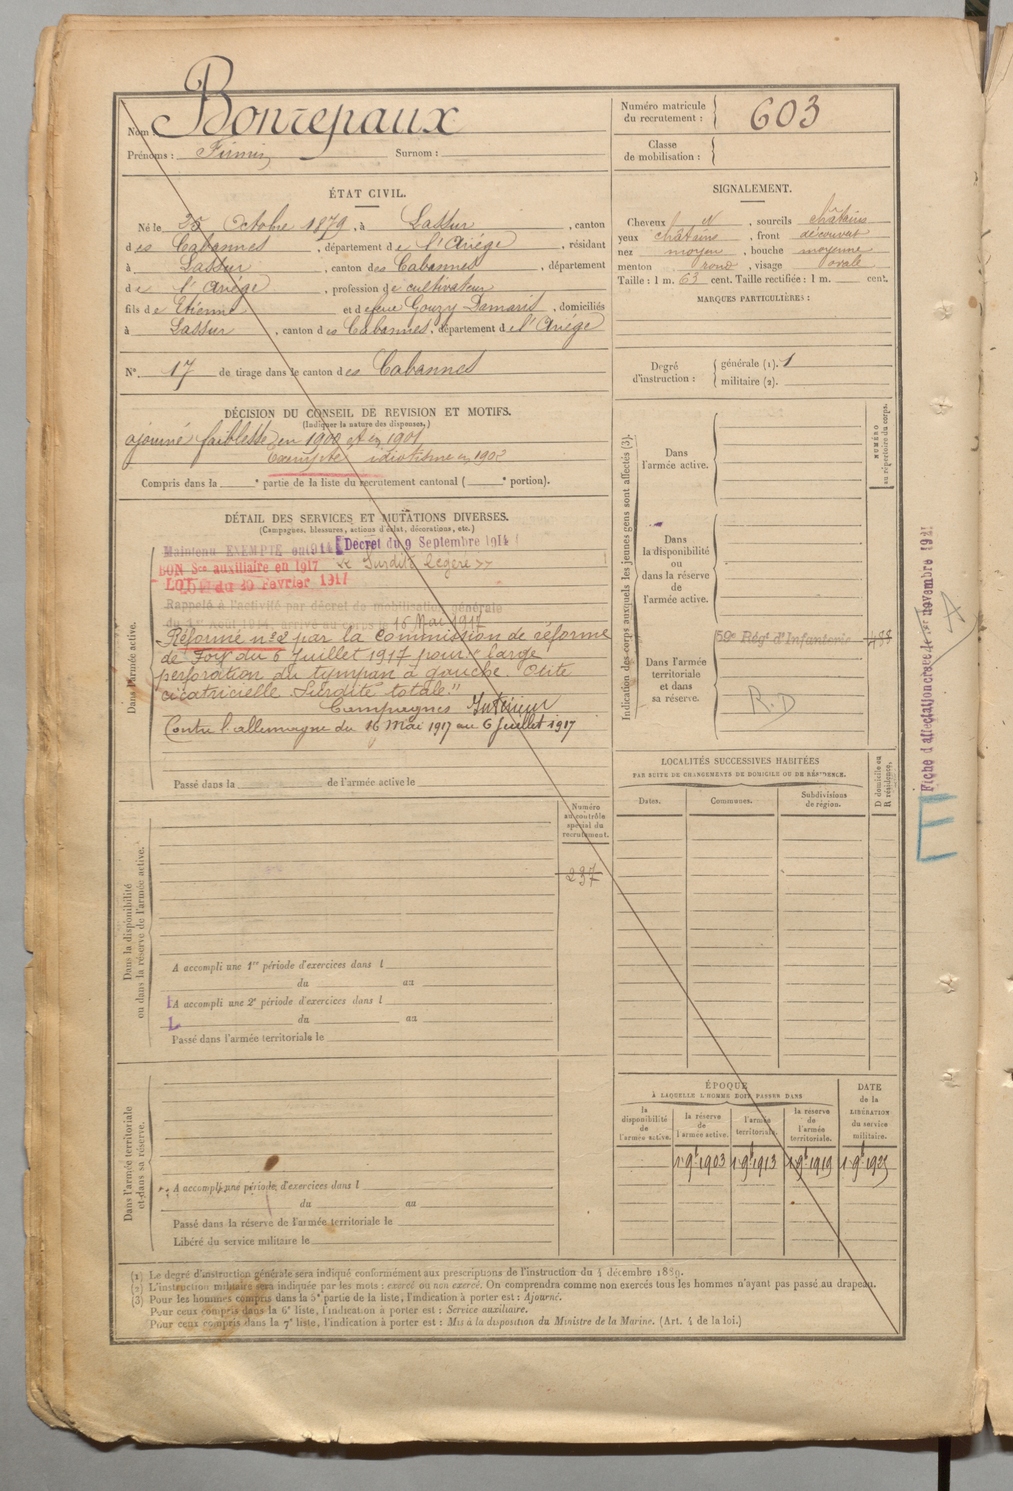 Nom Bonrepaux
Prénoms : Firmin Surnom :
Numéro matricule du recrutement : 603
Classe de mobilisation :
ÉTAT CIVIL.
Né le 25 Octobre 1879, à Lassur, canton
des Cabannes, département de l'Ariège, résidant
à Lassur, canton des Cabannes, département
de l'Ariège, profession de cultivateur
fils de Etienne et de feue Gouzy Damaris, domiciliés
à Lassur, canton des Cabannes, département de l'Ariège
N° 17 de tirage dans le canton des Cabannes
SIGNALEMENT.
Cheveux N, sourcils châtains
yeux châtains, front découvert
nez moyen, bouche moyenne
menton rond, visage ovale
Taille : 1 m. 63 cent. Taille rectifiée : 1 m. cent.
MARQUES PARTICULIÈRES :
Degré d'instruction :
générale (1). 1
militaire (2).
DÉCISION DU CONSEIL DE REVISION ET MOTIFS.
(Indiquer la nature des dispenses.)
ajourné faiblesse en 1900 et en 1901
Exempté idiotisme en 1902
Compris dans la e partie de la liste du recrutement cantonal ( e portion).
DÉTAIL DES SERVICES ET MUTATIONS DIVERSES.
(Campagnes, blessures, actions d'éclat, décorations, etc.)
Dans l'armée active.
Maintenu EXEMPTÉ en 1914 Décret du 9 Septembre 1914
BON Sce auxiliaire en 1917 « Surdité légère »
LOI du 20 Février 1917
Rappelé à l'activité par décret de mobilisation générale
du 1er Août 1914, arrivé au corps le 16 Mai 1917
Réformé n°2 par la Commission de réforme
de Foix du 6 Juillet 1917 pour "large
perforation du tympan à gauche. Otite
cicatricielle. Surdité totale"
Campagnes Intérieur
Contre l'allemagne du 16 Mai 1917 au 6 Juillet 1917
Passé dans la de l'armée active le
Indication des corps auxquels les jeunes gens sont affectés (3).
NUMÉRO au répertoire du corps.
Dans l'armée active.
Dans la disponibilité ou dans la réserve de l'armée active.
Dans l'armée territoriale et dans sa réserve.
59e Régt d'Infanterie
R.D
Fiche d'affectation créée le 1er novembre 1921
A
E
LOCALITÉS SUCCESSIVES HABITÉES
PAR SUITE DE CHANGEMENTS DE DOMICILE OU DE RÉSIDENCE.
Dates. Communes. Subdivisions de région. D domicile ou R résidence.
Dans la disponibilité ou dans la réserve de l'armée active.
Numéro au contrôle spécial du recrutement.
237
A accompli une 1re période d'exercices dans l
du au
A accompli une 2e période d'exercices dans l
du au
Passé dans l'armée territoriale le
Dans l'armée territoriale et dans sa réserve.
A accompli une période d'exercices dans l
du au
Passé dans la réserve de l'armée territoriale le
Libéré du service militaire le
ÉPOQUE
À LAQUELLE L'HOMME DOIT PASSER DANS
la disponibilité de l'armée active.
la réserve de l'armée active.
l'armée territoriale.
la réserve de l'armée territoriale.
DATE de la LIBÉRATION du service militaire.
1r 9bre 1903 1r 9bre 1913 1r 9bre 1919 1r 9bre 1925
(1) Le degré d'instruction générale sera indiqué conformément aux prescriptions de l'instruction du 4 décembre 1889.
(2) L'instruction militaire sera indiquée par les mots : exercé ou non exercé. On comprendra comme non exercés tous les hommes n'ayant pas passé au drapeau.
(3) Pour les hommes compris dans la 5e partie de la liste, l'indication à porter est : Ajourné.
Pour ceux compris dans la 6e liste, l'indication à porter est : Service auxiliaire.
Pour ceux compris dans la 7e liste, l'indication à porter est : Mis à la disposition du Ministre de la Marine. (Art. 4 de la loi.)